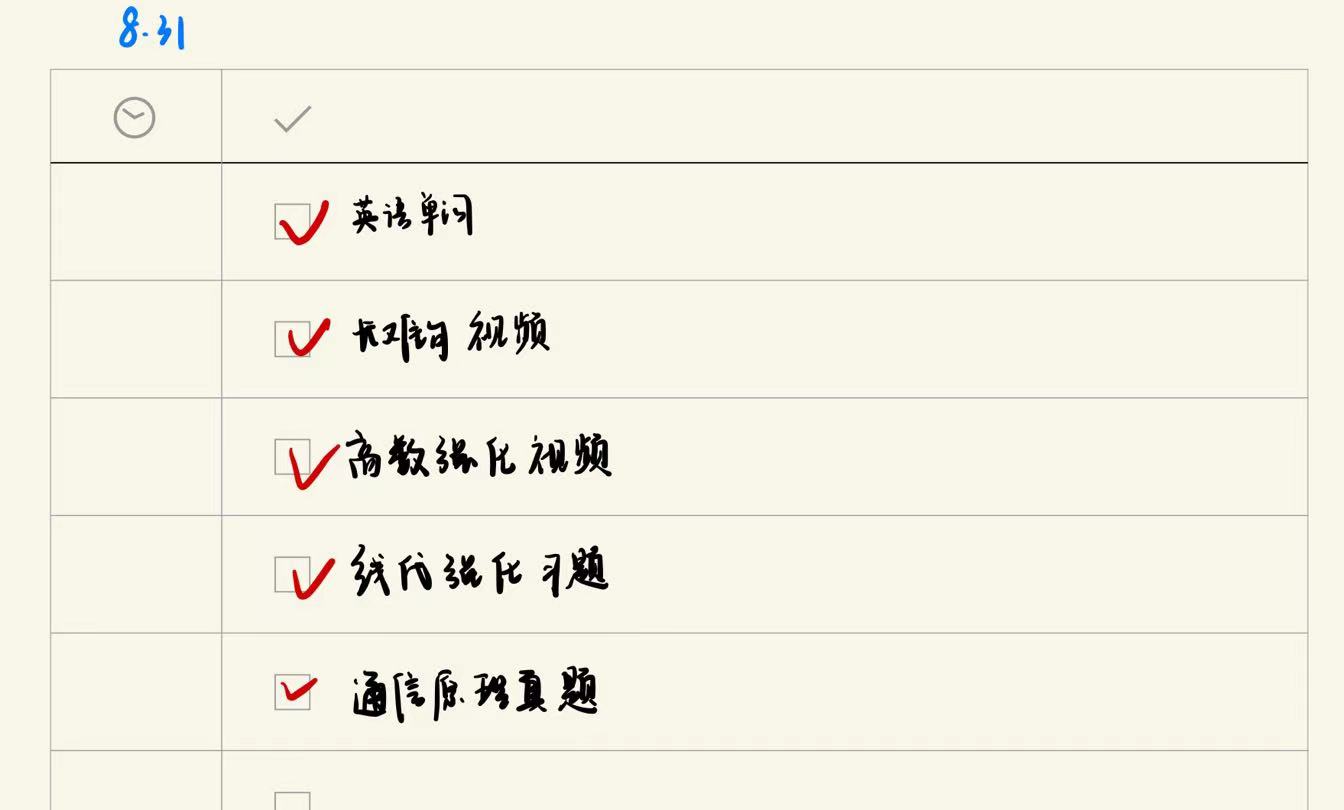 8.31
英语单词
长难句 视频
高数强化视频
线代强化习题
通信原理真题